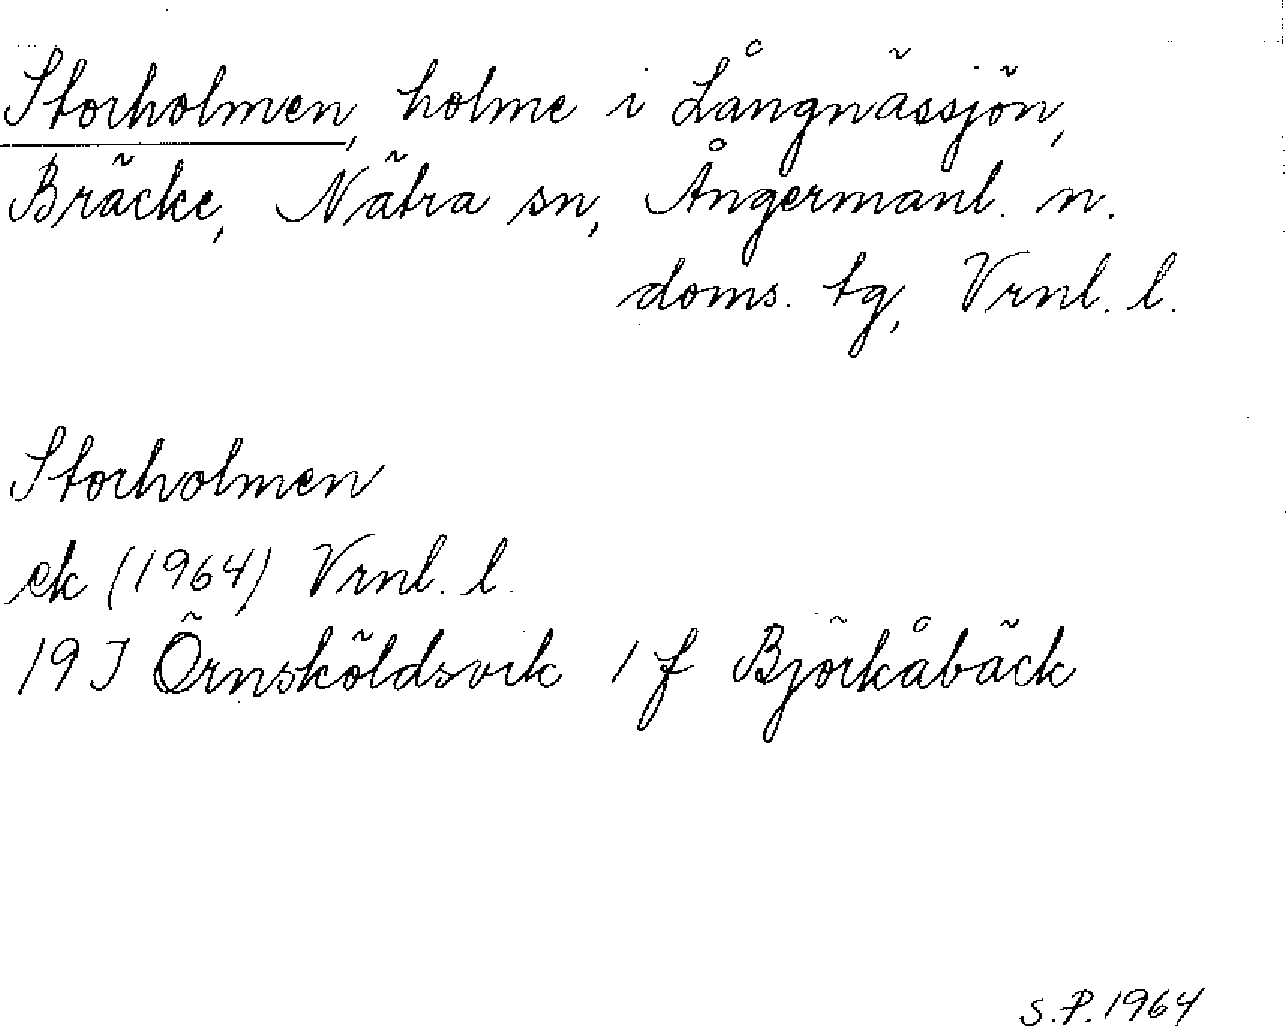 Storholmen, holme i Långnässjön,
Bräcke, Nätra sn, Ångermanl. n.
doms. tg, Vrnl. l.
Storholmen
ek (1964) Vrnl. l.
19 J Örnsköldsvik 1 f Björkåbäck
S.P. 1964